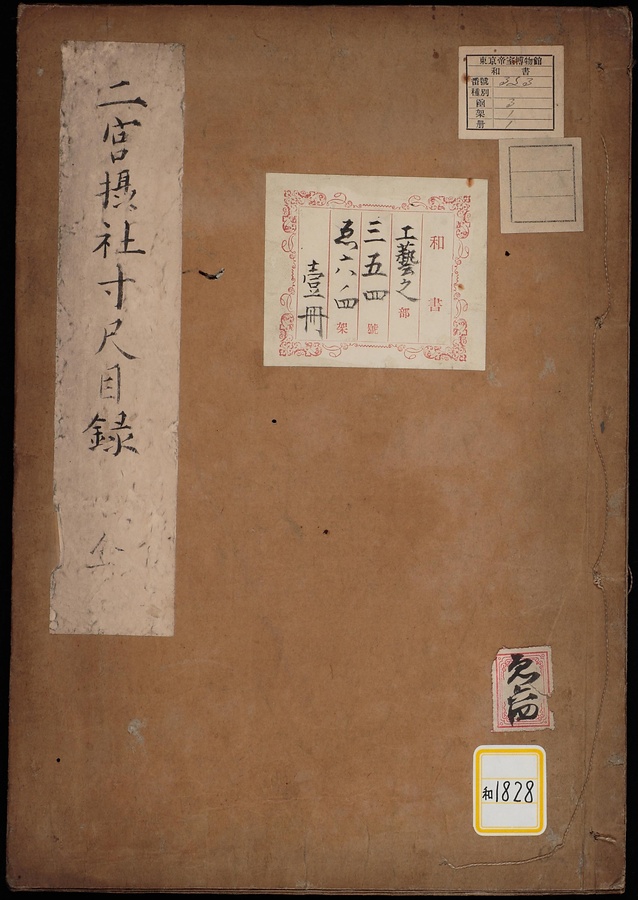 二宮摂社寸尺目録
全
東京帝室博物館
和書
番號 353
種別
函 2
架 1
册 1
和書
工藝之部
三五四號
ゑ六ノ四架
壹冊
ゑ六四
和1828